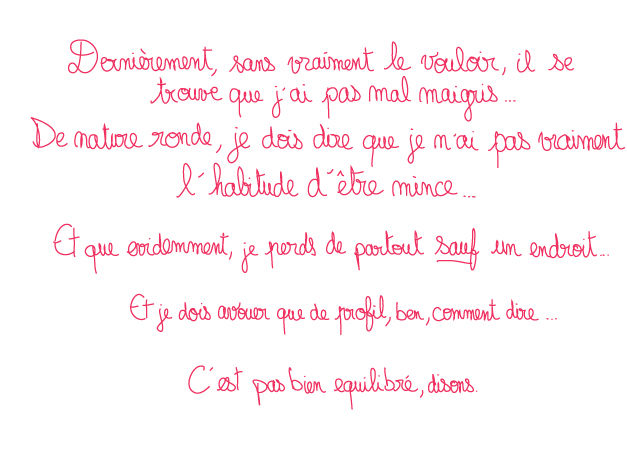 Dernièrement, sans vraiment le vouloir, il se
trouve que j'ai pas mal maigris...
De nature ronde, je dois dire que je n'ai pas vraiment
l'habitude d'être mince...
Et que evidemment, je perds de partout sauf un endroit...
Et je dois avouer que de profil, ben, comment dire ...
C'est pas bien equilibré, disons.